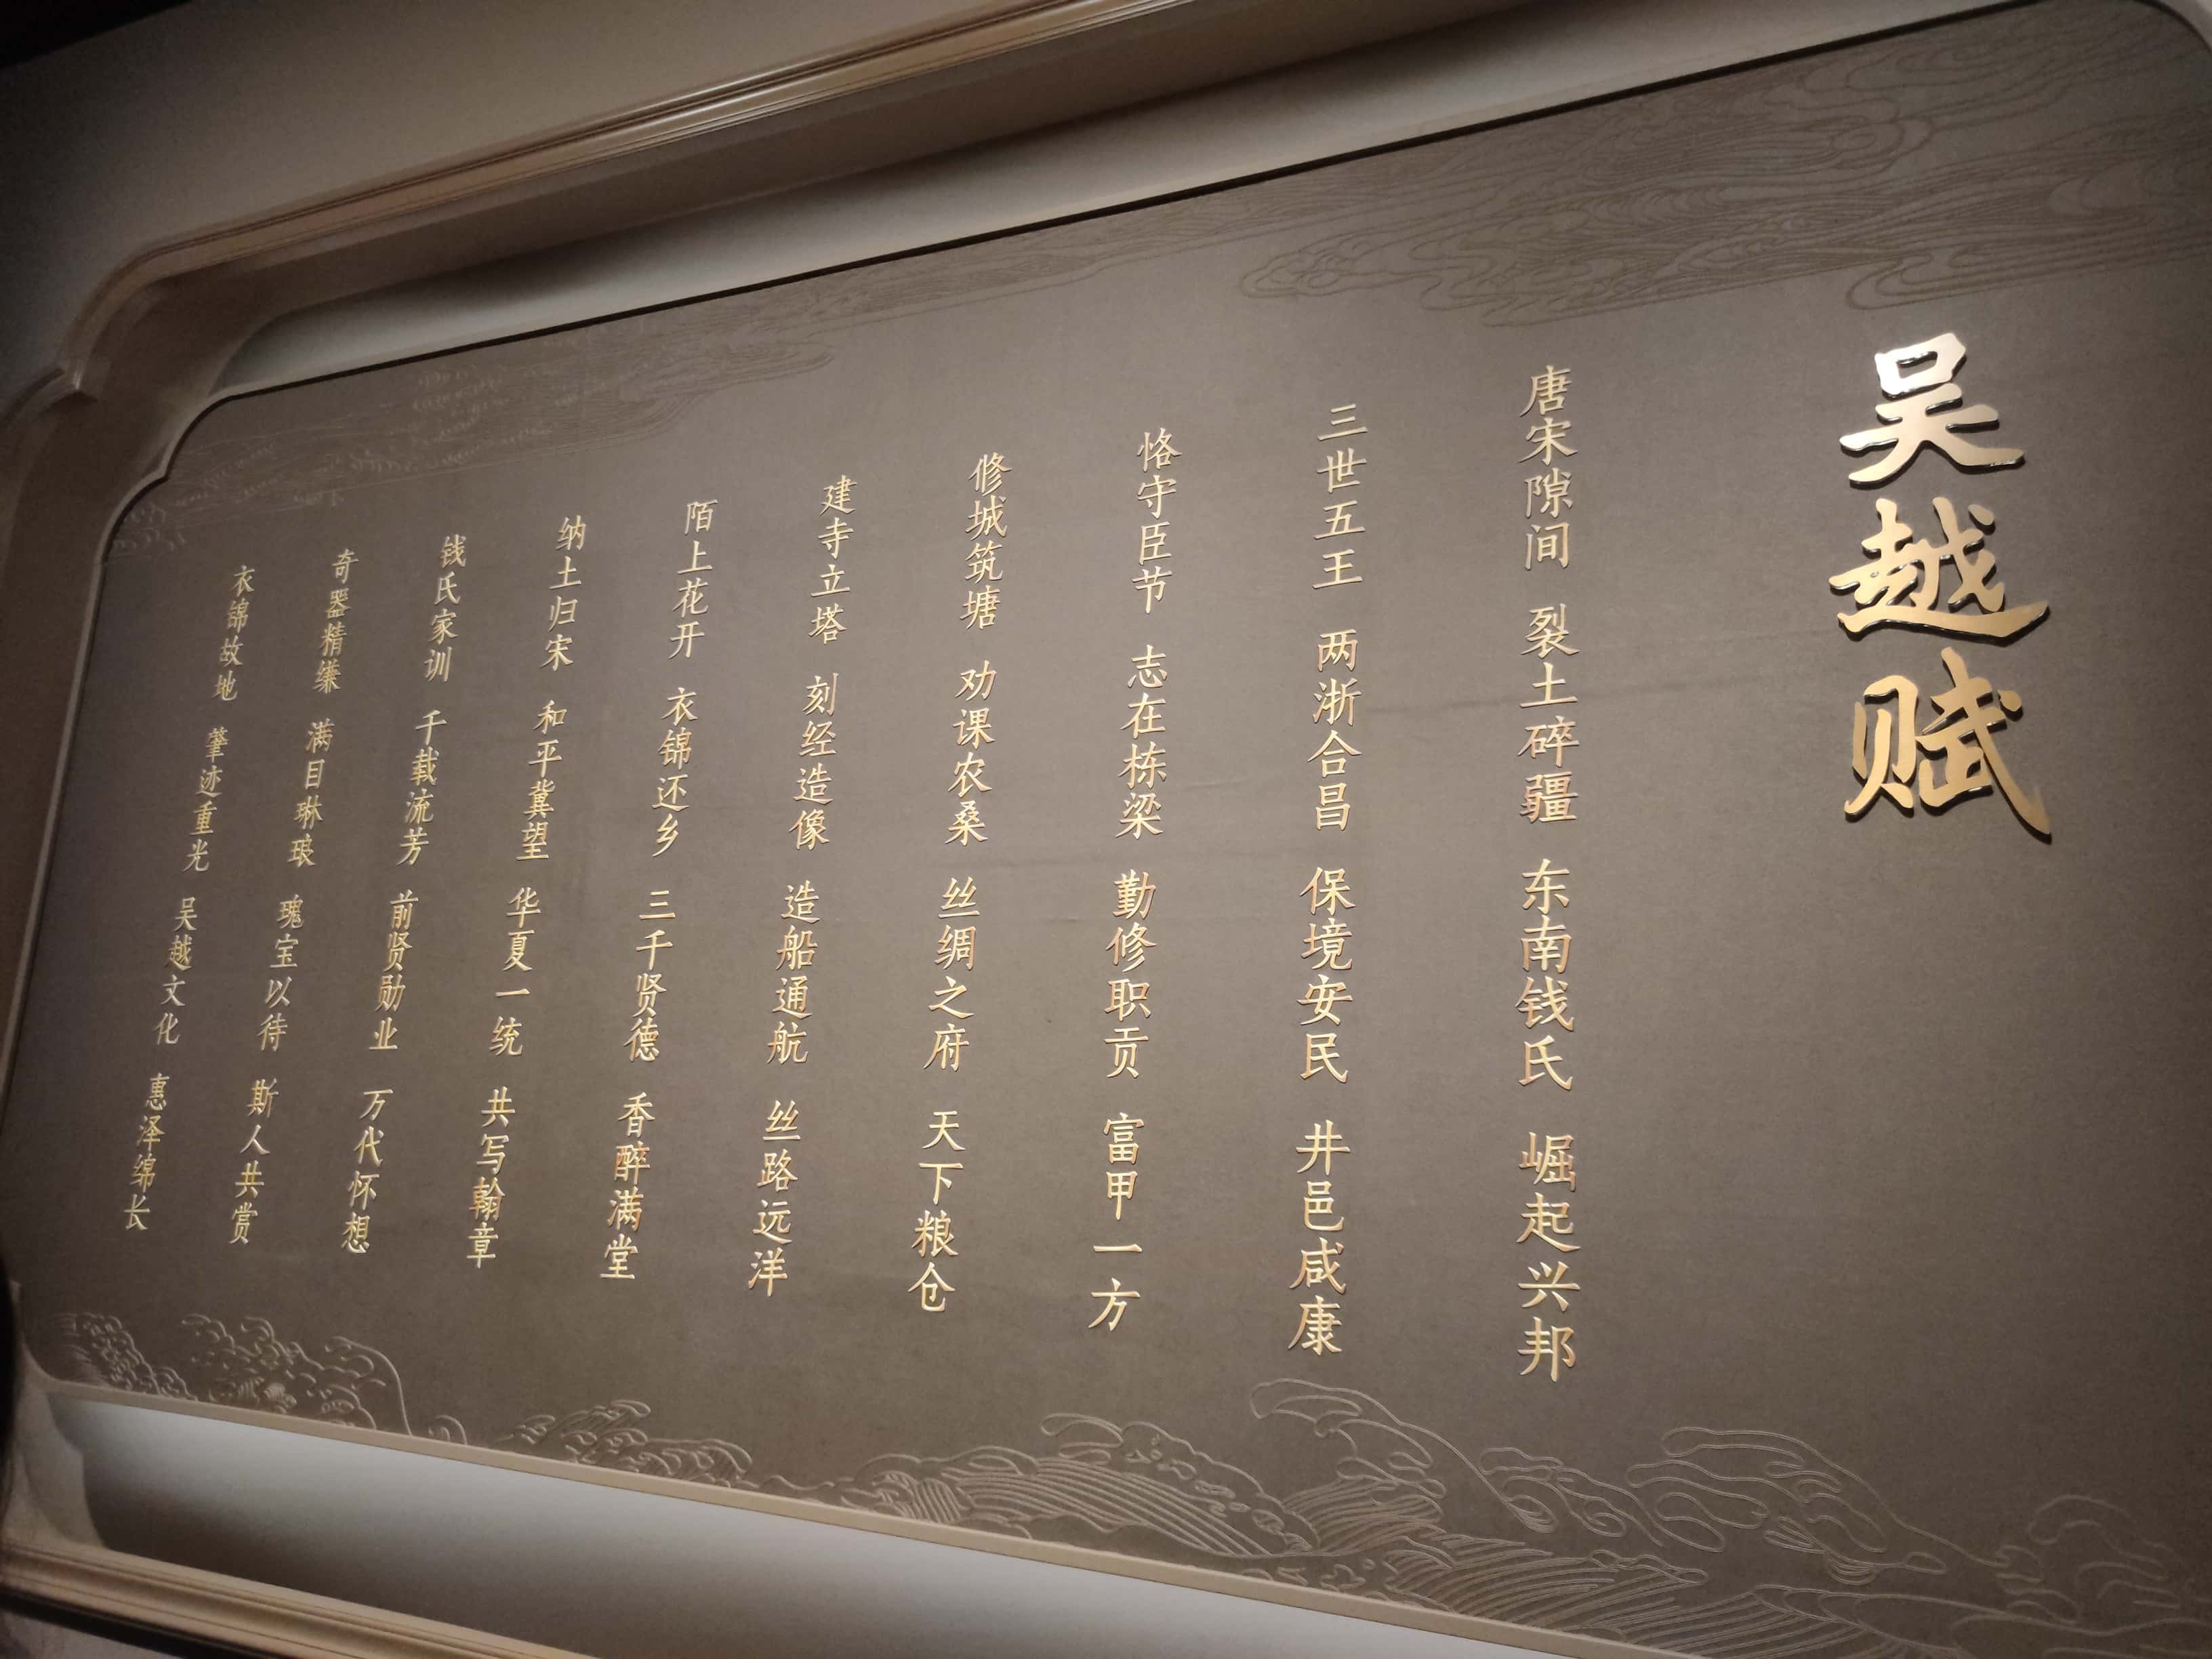 吴越赋
唐宋隙间 裂土碎疆 东南钱氏 崛起兴邦
三世五王 两浙合昌 保境安民 井邑咸康
恪守臣节 志在栋梁 勤修职贡 富甲一方
修城筑塘 劝课农桑 丝绸之府 天下粮仓
建寺立塔 刻经造像 造船通航 丝路远洋
陌上花开 衣锦还乡 三千贤德 香醉满堂
纳土归宋 和平冀望 华夏一统 共写翰章
钱氏家训 千载流芳 前贤勋业 万代怀想
奇器精缣 满目琳琅 瑰宝以待 斯人共赏
衣锦故地 肇迹重光 吴越文化 惠泽绵长